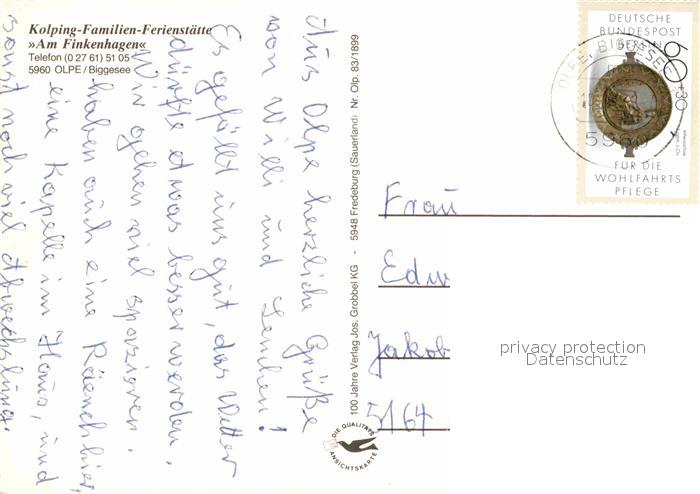 Kolping-Familien-Ferienstätte
»Am Finkenhagen«
Telefon (0 27 61) 51 05
5960 OLPE / Biggesee
Aus Olpe herzliche Grüße
von Willi und
Es gefällt uns gut, das Wetter
dürfte etwas besser werden.
Wir gehen viel spazieren.
haben auch eine
eine Kapelle im Haus, und
sonst noch viel Abwechslung.
100 Jahre Verlag Jos. Grobbel KG - 5948 Fredeburg (Sauerland) Nr. Olp. 83/1899
DIE QUALITÄTS
ANSICHTSKARTE
DEUTSCHE
BUNDESPOST
BERLIN
60+30
FÜR DIE
WOHLFAHRTS
PFLEGE
OLPE, BIGGESEE
Frau
Edw
Jakob
5164
privacy protection
Datenschutz